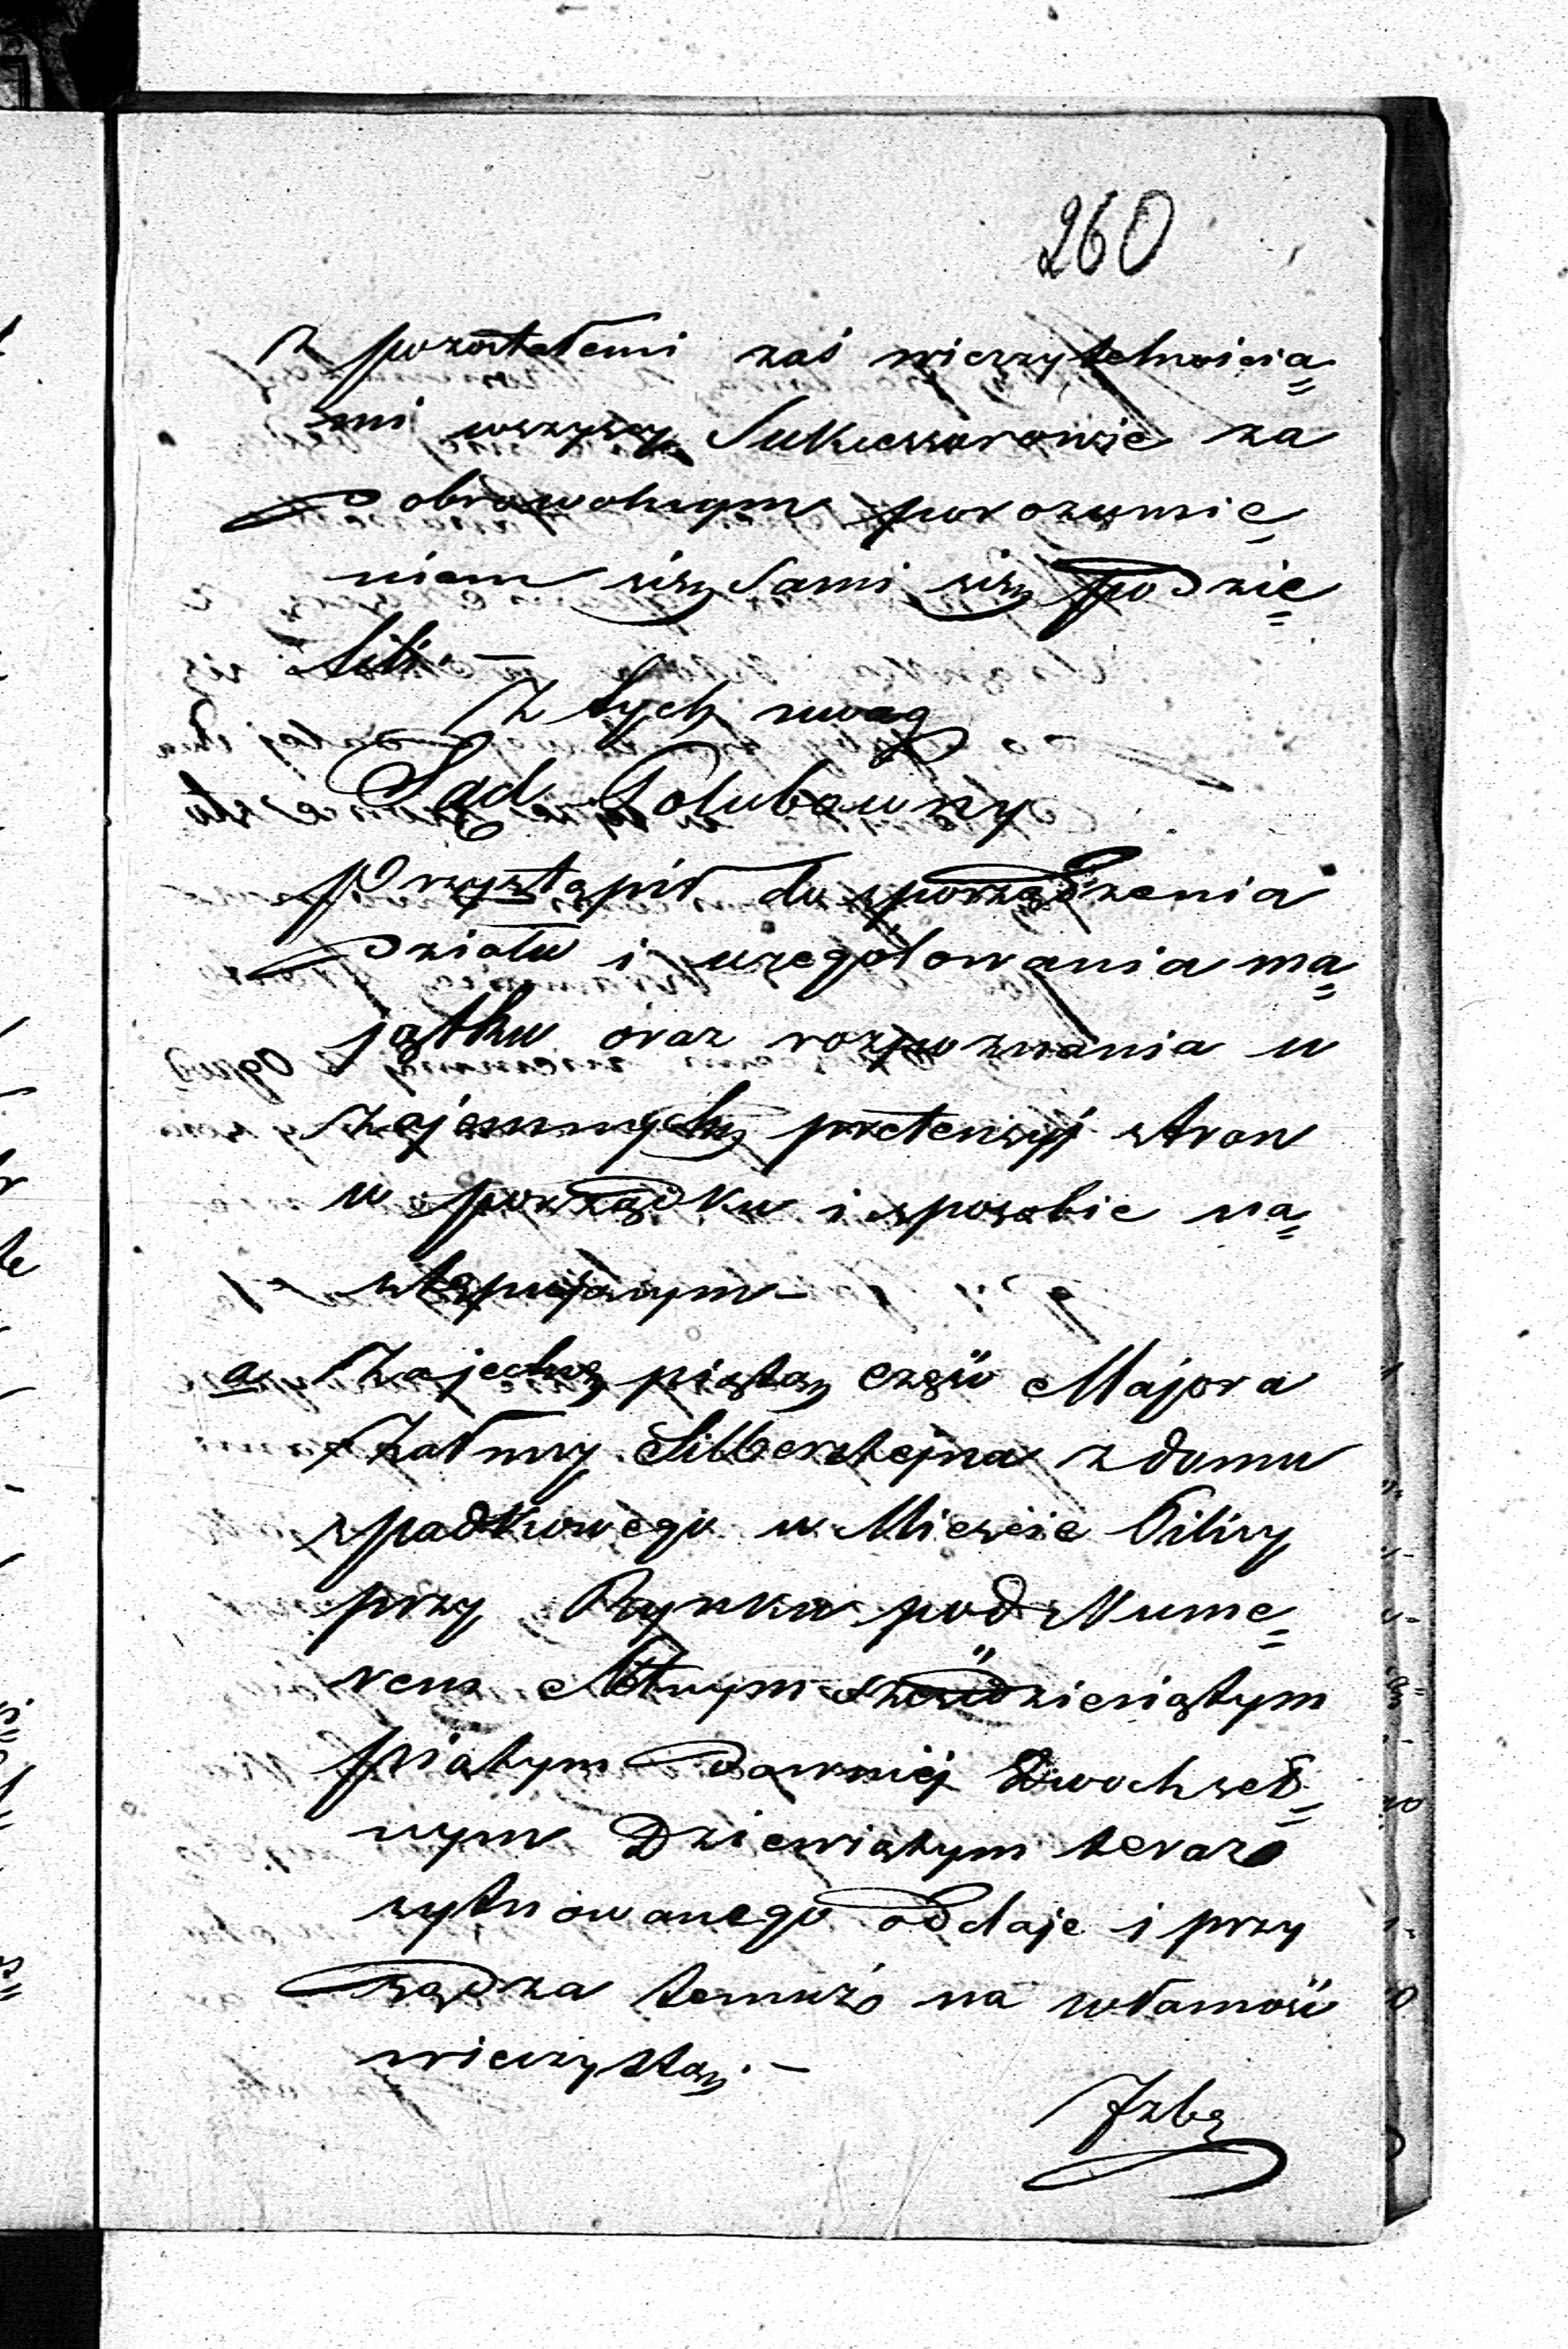 260
z pozostałemi zaś wierzytelnościa=
mi wszyscy Sukcessorowie za
dobrowolnym porozumie=
niem się sami się podzie=
lili. —
Z tych uwag
Sąd Polubowny
Przystąpił do sporządzenia
działu i uregulowania ma=
jątku oraz rozpoznania w
zajemnych pretensyj stron
w porządku i sposobie na=
stępującym —
a. Zajedną piątą część Majora
Załmy Silbersztejna z domu
spadkowego w Mieście Pilicy
przy Rynku pod Nume=
rem sześdziesiątym
piątym dawniej Dwochset=
nym Dziewiątym teraz
sytuowanego oddaje i przy
sądza temuż na własność
wieczystą. —
Izbę